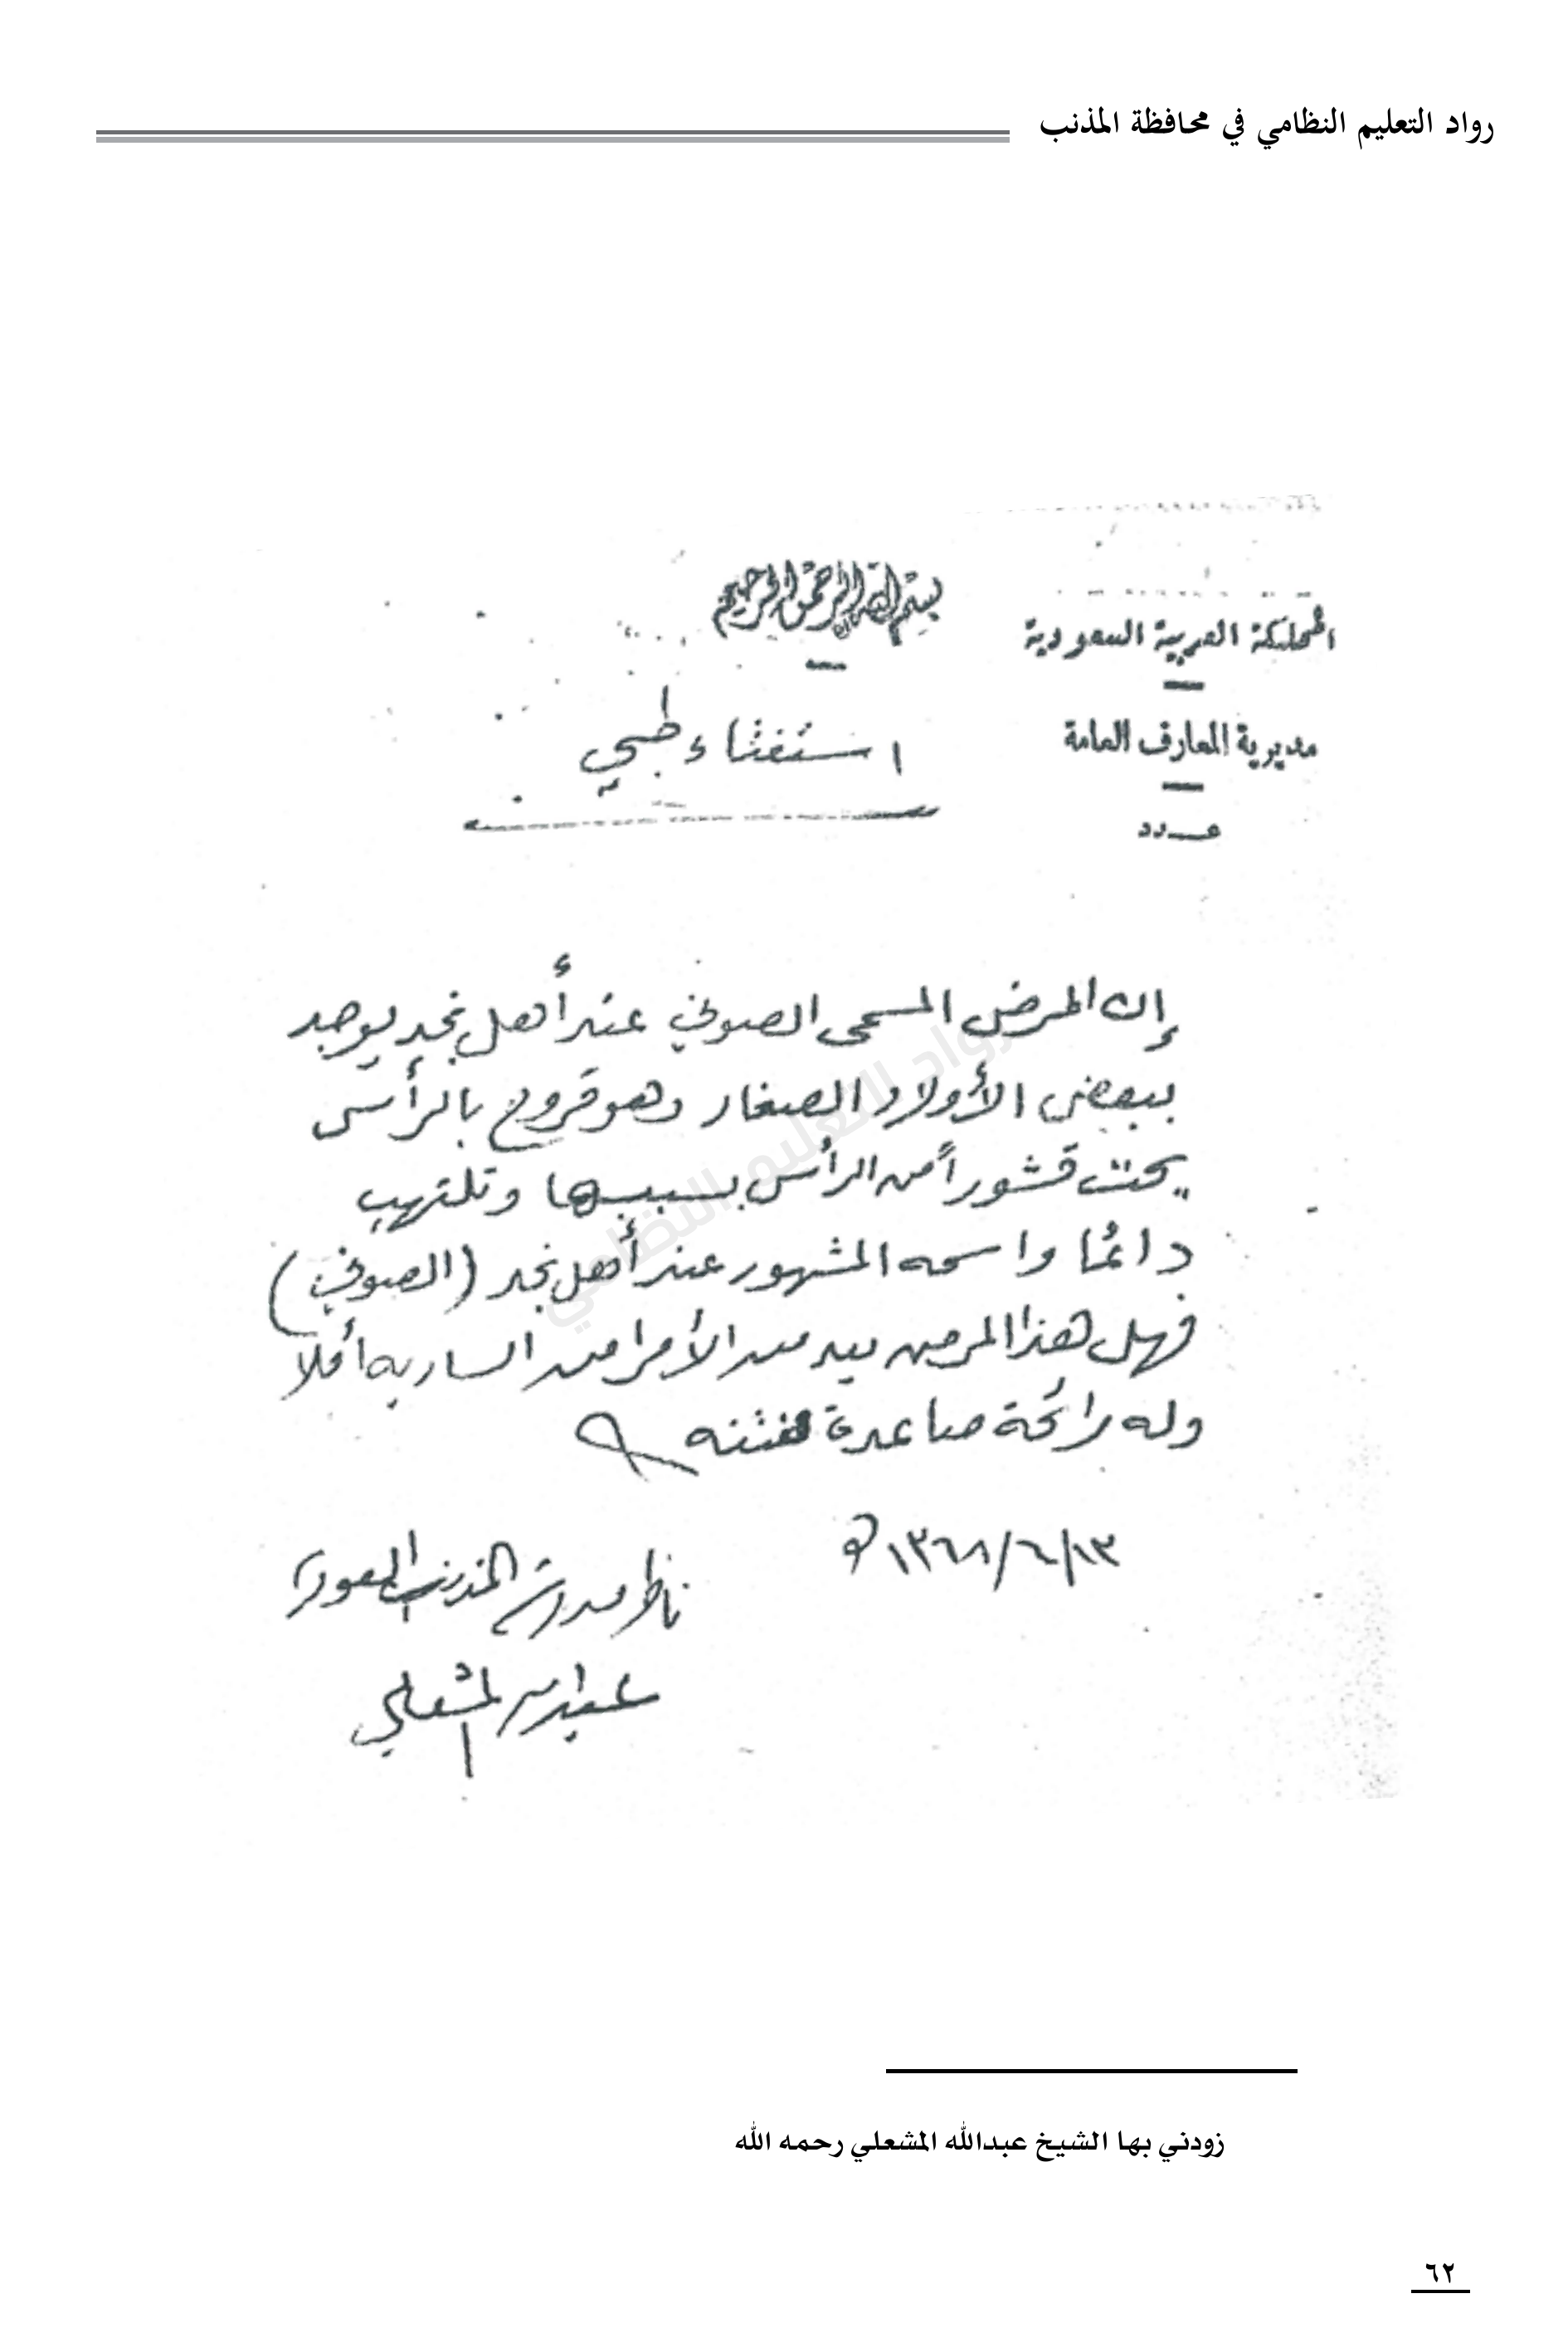 رواد التعليم النظامي في محافظة المذنب
بسم الله الرحمن الرحيم
المملكة العربية السعودية
مديرية المعارف العامة
عدد
استفتاء طبي
إن المرض المسمى الصوفي عند أهل نجد يوجد
ببعض الأولاد الصغار وهو قروح بالرأس
يحت قشوراً من الرأس بسببها وتلتهب
دائما واسمه المشهور عند أهل نجد (الصوفي)
فهل هذا المرض يعد من الأمراض الساريه أم لا
وله رائحة صاعدة منتنه
١٣/٦/١٣٦٨ه
ناظر مدرسة المذنب السعودية
عبدالله المشعلي
رواد التعليم النظامي
زودني بها الشيخ عبدالله المشعلي رحمه الله
٦٢